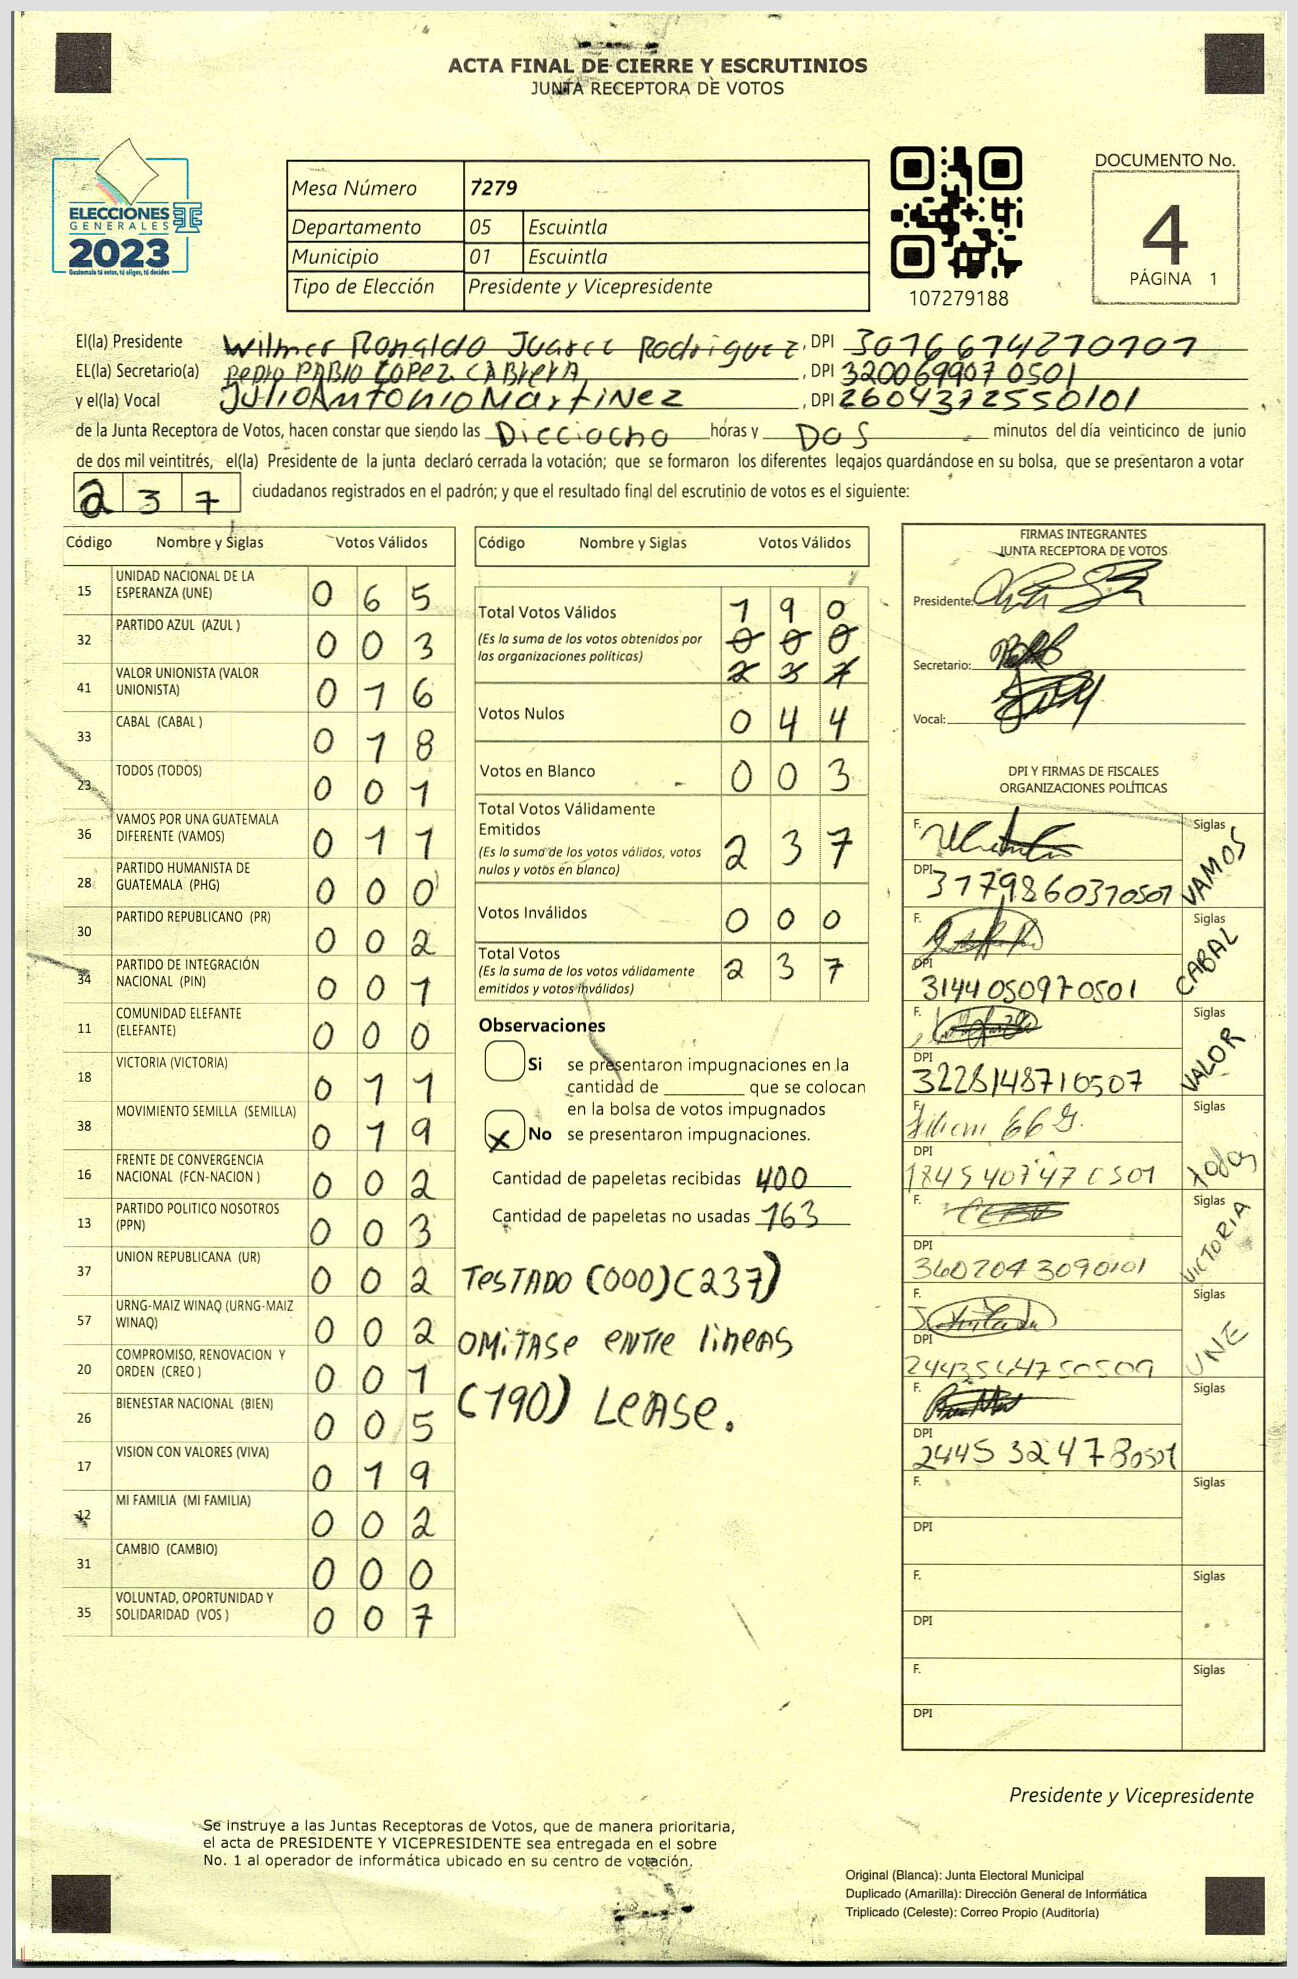 ACTA FINAL DE CIERRE Y ESCRUTINIOS
JUNTA RECEPTORA DE VOTOS
ELECCIONES
GENERALES
2023
Guatemala tú votas, tú eliges, tú decides
Mesa Número 7279
Departamento 05 Escuintla
Municipio 01 Escuintla
Tipo de Elección Presidente y Vicepresidente
107279188
DOCUMENTO No.
4
PÁGINA 1
El(la) Presidente Wilmer Ronaldo Juarez Rodriguez, DPI 3016674270101
EL(la) Secretario(a) PEDRO PABLO LOPEZ CABRERA, DPI 3200699070501
y el(la) Vocal JULIO ANTONIO MARTINEZ, DPI 2604372550101
de la Junta Receptora de Votos, hacen constar que siendo las Dieciocho horas y DOS minutos del día veinticinco de junio
de dos mil veintitrés, el(la) Presidente de la junta declaró cerrada la votación; que se formaron los diferentes legajos guardándose en su bolsa, que se presentaron a votar
237 ciudadanos registrados en el padrón; y que el resultado final del escrutinio de votos es el siguiente:
Código Nombre y Siglas Votos Válidos
15 UNIDAD NACIONAL DE LA ESPERANZA (UNE) 0 6 5
32 PARTIDO AZUL (AZUL ) 0 0 3
41 VALOR UNIONISTA (VALOR UNIONISTA) 0 1 6
33 CABAL (CABAL ) 0 1 8
23 TODOS (TODOS) 0 0 1
36 VAMOS POR UNA GUATEMALA DIFERENTE (VAMOS) 0 1 1
28 PARTIDO HUMANISTA DE GUATEMALA (PHG) 0 0 0
30 PARTIDO REPUBLICANO (PR) 0 0 2
34 PARTIDO DE INTEGRACIÓN NACIONAL (PIN) 0 0 1
11 COMUNIDAD ELEFANTE (ELEFANTE) 0 0 0
18 VICTORIA (VICTORIA) 0 1 1
38 MOVIMIENTO SEMILLA (SEMILLA) 0 1 9
16 FRENTE DE CONVERGENCIA NACIONAL (FCN-NACION ) 0 0 2
13 PARTIDO POLITICO NOSOTROS (PPN) 0 0 3
37 UNION REPUBLICANA (UR) 0 0 2
57 URNG-MAIZ WINAQ (URNG-MAIZ WINAQ) 0 0 2
20 COMPROMISO, RENOVACION Y ORDEN (CREO ) 0 0 1
26 BIENESTAR NACIONAL (BIEN) 0 0 5
17 VISION CON VALORES (VIVA) 0 1 9
12 MI FAMILIA (MI FAMILIA) 0 0 2
31 CAMBIO (CAMBIO) 0 0 0
35 VOLUNTAD, OPORTUNIDAD Y SOLIDARIDAD (VOS ) 0 0 7
Código Nombre y Siglas Votos Válidos
Total Votos Válidos 1 9 0
(Es la suma de los votos obtenidos por 0 0 0
las organizaciones políticas) 2 3 7
Votos Nulos 0 4 4
Votos en Blanco 0 0 3
Total Votos Válidamente
Emitidos
(Es la suma de los votos válidos, votos 2 3 7
nulos y votos en blanco)
Votos Inválidos 0 0 0
Total Votos
(Es la suma de los votos válidamente 2 3 7
emitidos y votos inválidos)
Observaciones
Si se presentaron impugnaciones en la
cantidad de ________ que se colocan
en la bolsa de votos impugnados
X No se presentaron impugnaciones.
Cantidad de papeletas recibidas 400
Cantidad de papeletas no usadas 163
TESTADO (000) (237)
OMITASE ENTRE lineas
(190) LEASE.
FIRMAS INTEGRANTES
JUNTA RECEPTORA DE VOTOS
Presidente:
Secretario:
Vocal:
DPI Y FIRMAS DE FISCALES
ORGANIZACIONES POLÍTICAS
F. Siglas
DPI 3179860370501 VAMOS
F. Siglas
DPI 3144050970501 CABAL
F. Siglas
DPI 3228148710507 VALOR
F. Siglas
DPI Todos
F. Siglas
DPI 3602043090101 VICTORIA
F. Siglas
DPI UNE
F. Siglas
DPI 2445324780501
F. Siglas
DPI
F. Siglas
DPI
F. Siglas
DPI
Presidente y Vicepresidente
Se instruye a las Juntas Receptoras de Votos, que de manera prioritaria,
el acta de PRESIDENTE Y VICEPRESIDENTE sea entregada en el sobre
No. 1 al operador de informática ubicado en su centro de votación.
Original (Blanca): Junta Electoral Municipal
Duplicado (Amarilla): Dirección General de Informática
Triplicado (Celeste): Correo Propio (Auditoría)